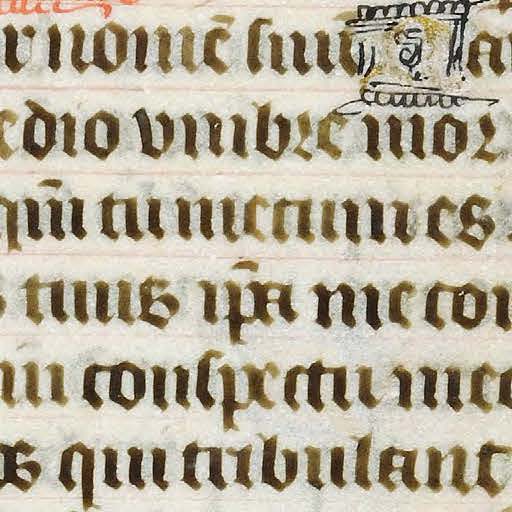 nomē ſuū
edio vmbre mor
qm̄ tu mecum es
tuus ip̄a me con
in conſpectu me
qui tribulant